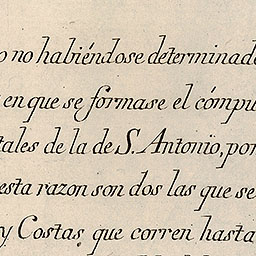 o no habiéndose determinado
en que se formase el cómpu
tales de la de S. Antonio, por
esta razon son dos las que se
y Costas, que corren hasta